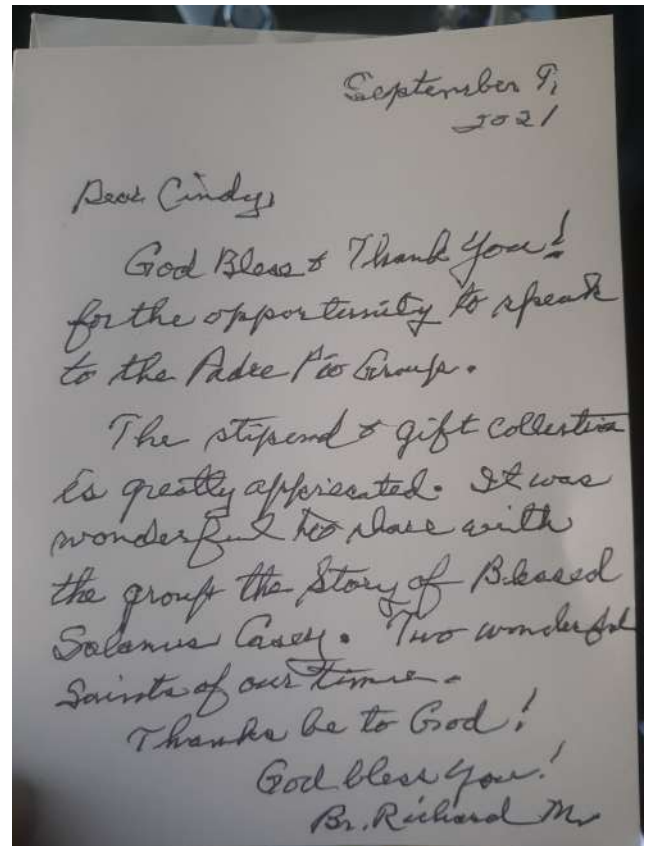 September 9,
2021
Dear Cindy,
God Bless & Thank You!
for the opportunity to speak
to the Padre Pio Group.
The stipend & gift collection
is greatly appreciated. It was
wonderful to share with
the group the Story of Blessed
Solanus Casey. Two wonderful
Saints of our time.
Thanks be to God!
God bless you!
Br. Richard M.